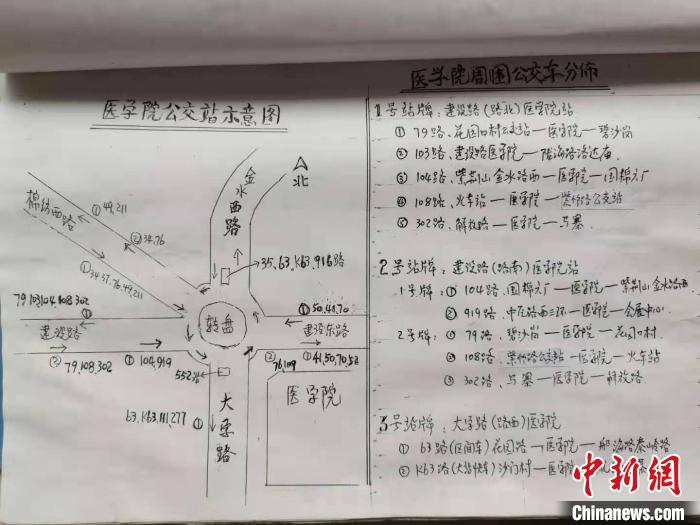 医学院公交站示意图
北
金水西路
棉纺西路
①49,211
②34,76
①34,37,76,49,211
35,63,K63,916路
79,103,104,108,302
转盘
①50,41,70
建设路
建设东路
②79,108,302
①104,919
②76,109
①41,50,70,52
552路
医学院
63,K63,111,277
①
大学路
医学院周围公交车分佈
1号站牌:建设路(路北)医学院站
①79路、花园口村公交站—医学院—碧沙岗
②103路、建设路医学院—陇海路洛达庙
③104路、紫荆山金水路西—医学院—国棉六厂
④108路、火车站—医学院—紫竹路公交站
⑤302路、解放路—医学院—马寨
2号站牌:建设路(路南)医学院站
1号牌:①104路、国棉六厂—医学院—紫荆山金水路西
②919路、中原路西三环—医学院—会展中心
2号牌:①79路、碧沙岗—医学院—花园口村
②108路、紫竹路公交站—医学院—火车站
③302路、马寨—医学院—解放路
3号站牌:大学路(路西)医学院
①63路(区间车)花园路—医学院—航海路秦岭路
②K63路(大站快车)沙门村—医学院
中新网
Chinanews.com